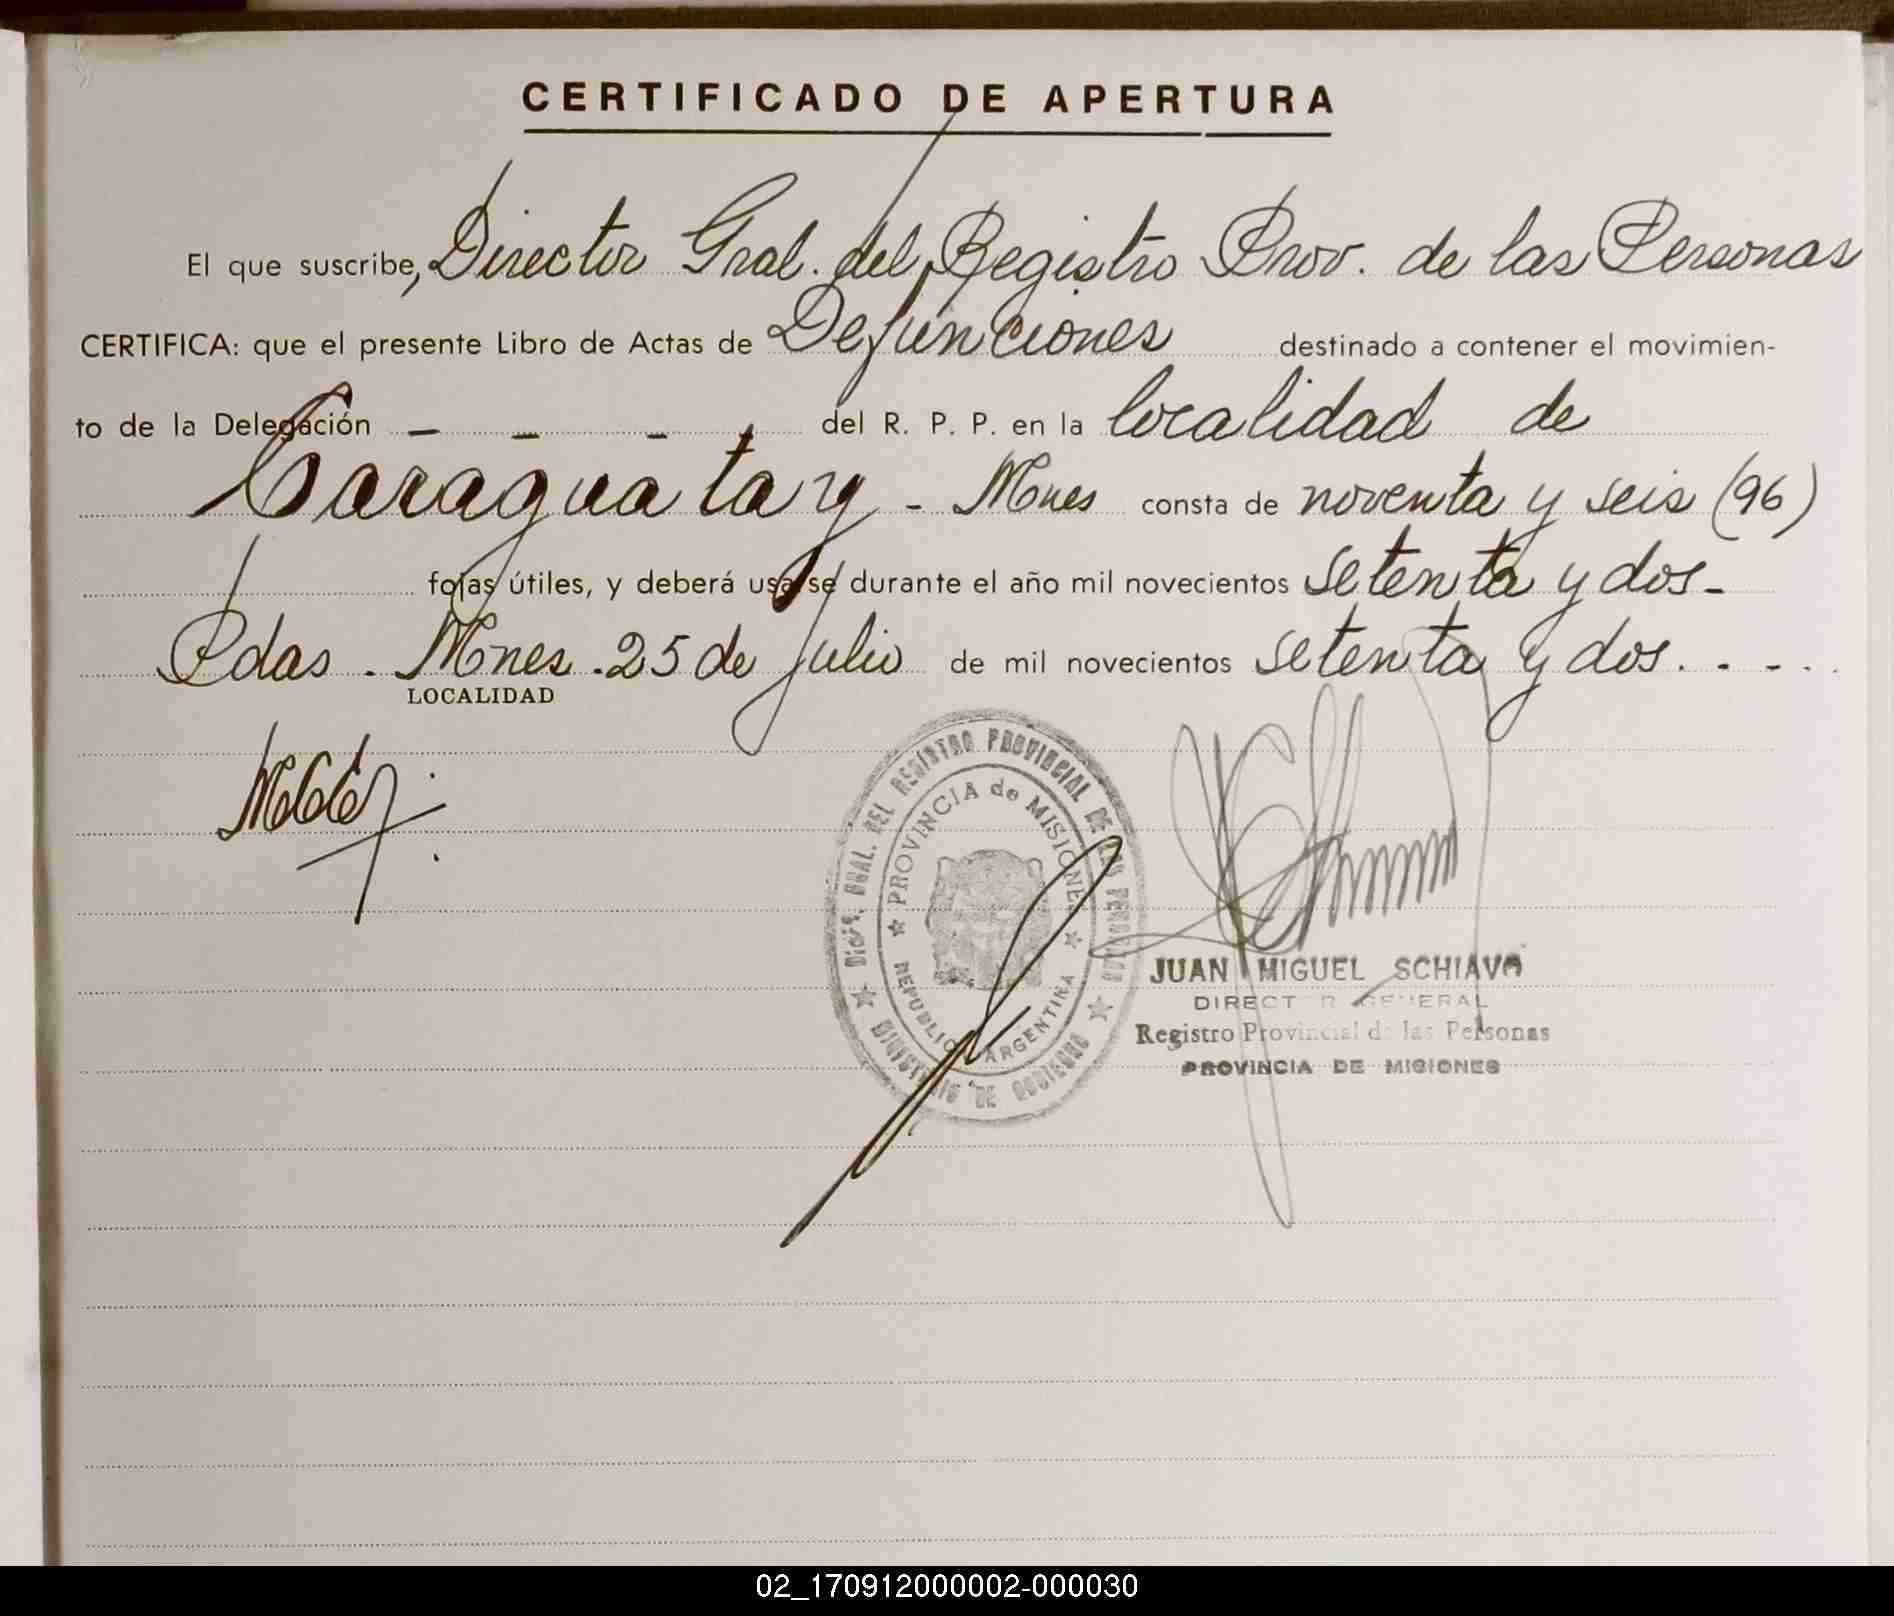 CERTIFICADO DE APERTURA
El que suscribe, Director Gral. del Registro Prov. de las Personas
CERTIFICA: que el presente Libro de Actas de Defunciones destinado a contener el movimien-
to de la Delegación - - - - del R. P. P. en la localidad de
Caraguatay - Mnes consta de noventa y seis (96)
fojas útiles, y deberá usarse durante el año mil novecientos setenta y dos-
Pdas. Mnes. 25 de julio de mil novecientos setenta y dos. - - . .
LOCALIDAD
DIREC. GRAL. DEL REGISTRO PROVINCIAL DE LAS PERSONAS
PROVINCIA de MISIONES
REPUBLICA ARGENTINA
MINISTERIO DE GOBIERNO
JUAN MIGUEL SCHIAVO
DIRECTOR GENERAL
Registro Provincial de las Personas
PROVINCIA DE MISIONES
02_170912000002-000030